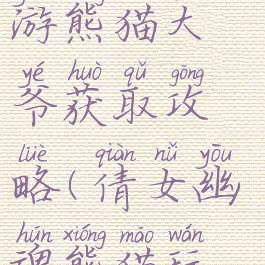 游熊猫大
yé huò qǔ gōng
爷获取攻
lüè qiàn nǚ yōu
略(倩女幽
hún xióng māo wán
魂熊猫玩